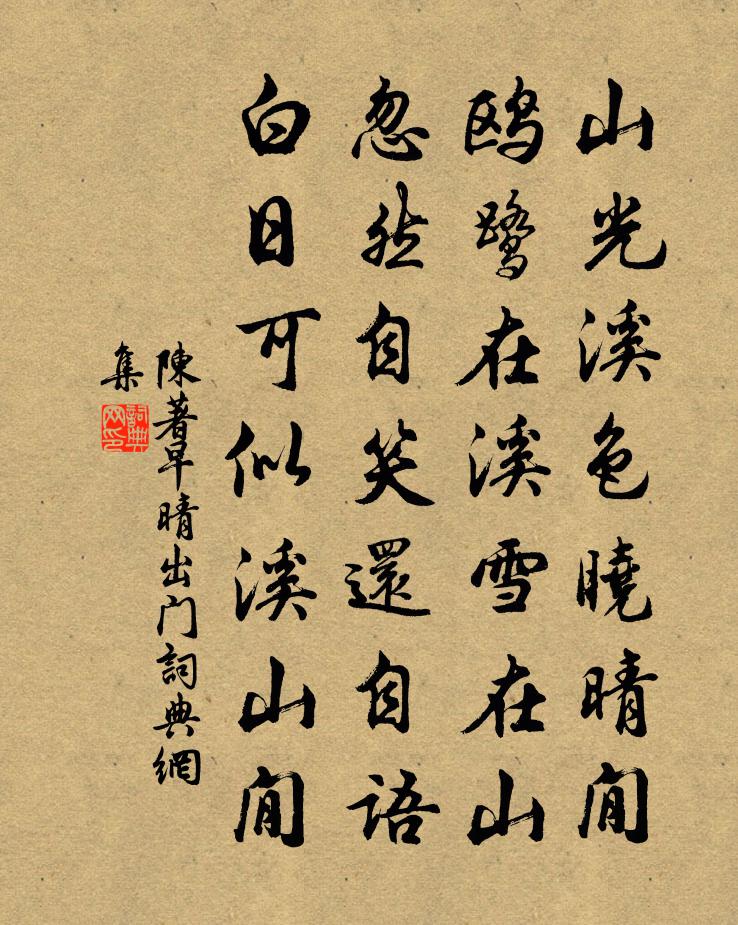 山光溪色曉晴閒
鷗鷺在溪雪在山
忽然自笑還自語
白日可似溪山閒
陳著早晴出门詞典網
集
詞典网印